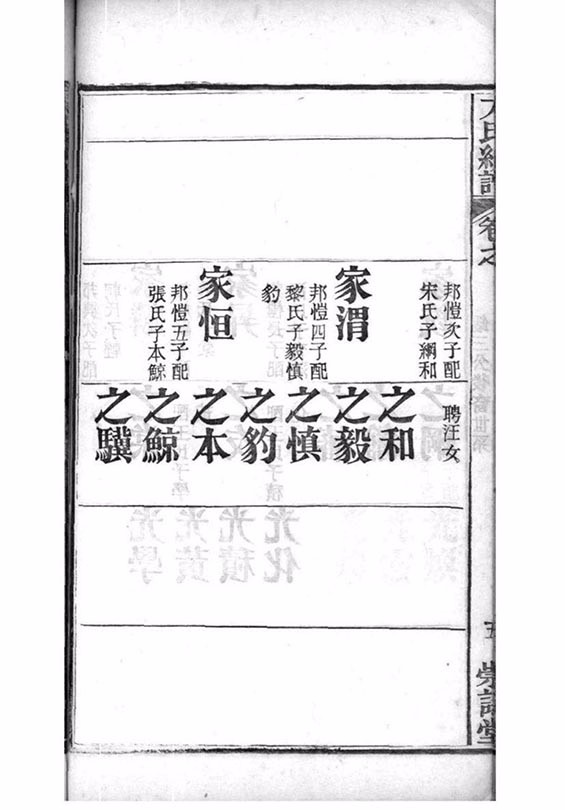 邦愷次子配
宋氏子綱和
家渭
邦愷四子配
黎氏子毅慎
豹
家恒
邦愷五子配
張氏子本鯨
聘汪女
之和
之毅
之慎
之豹
之本
之鯨
之驥